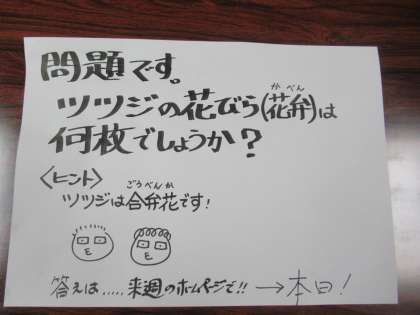 問題です。
ツツジの花びら(花弁)は
かべん
何枚でしょうか?
<ヒント>
ごうべんか
ツツジは合弁花です!
答えは.....来週のホームページで!! → 本日!